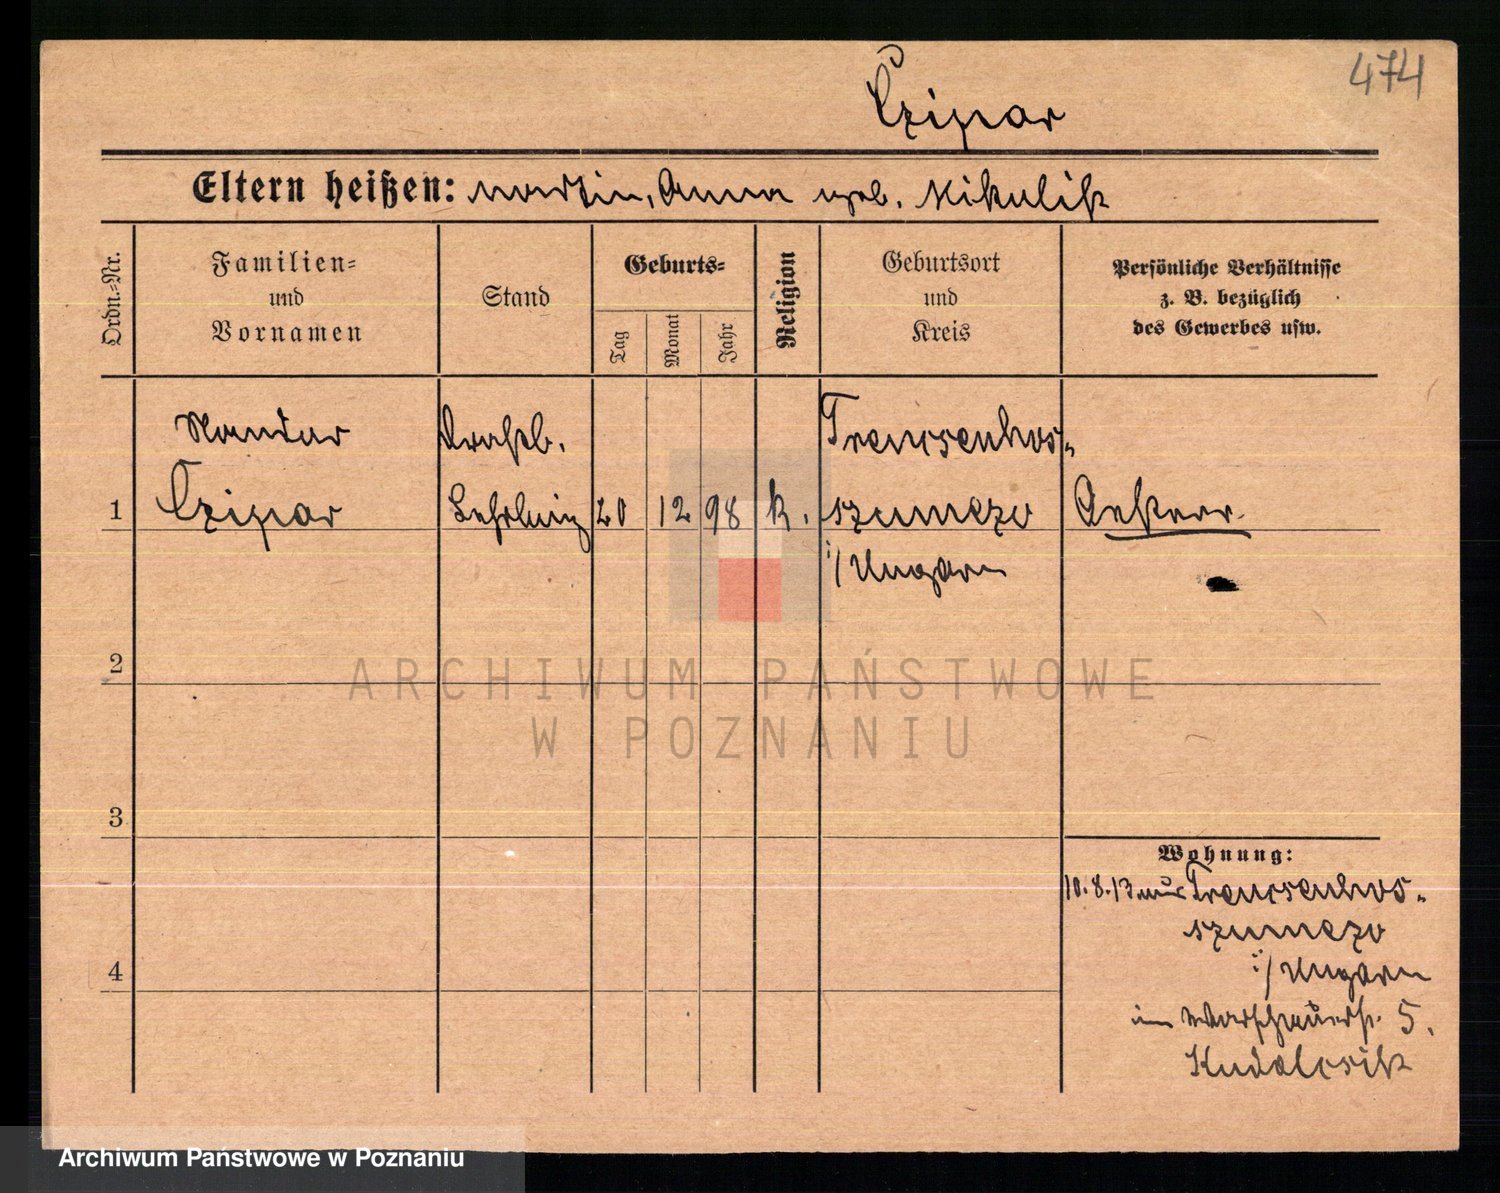 474
Czipar
Eltern heißen: Martin, Anna geb. Mikulik
Ordn.-Nr.
Familien- und Vornamen
Stand
Geburts-
Tag
Monat
Jahr
Religion
Geburtsort und Kreis
Persönliche Verhältnisse z. B. bezüglich des Gewerbes usw.
1
Czipar
Drahtb.
Lehrling
20 12 98 k.
Trencsenhos-
szumezo
i/ Ungarn
2
3
4
Wohnung:
10.8.13 aus Trencsenhos-
szumezo
i/ Ungarn
in Warschauerstr. 5.
ARCHIWUM PAŃSTWOWE
W POZNANIU
Archiwum Państwowe w Poznaniu